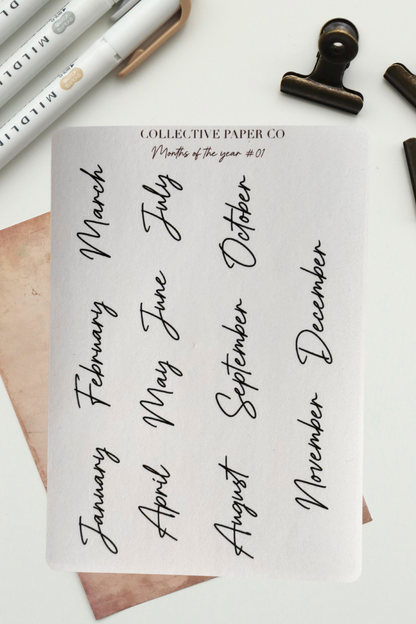 MILDL
MILDLI
MILDLIN
COLLECTIVE PAPER CO
Months of the year #01
January February March
April May June July
August September October
November December